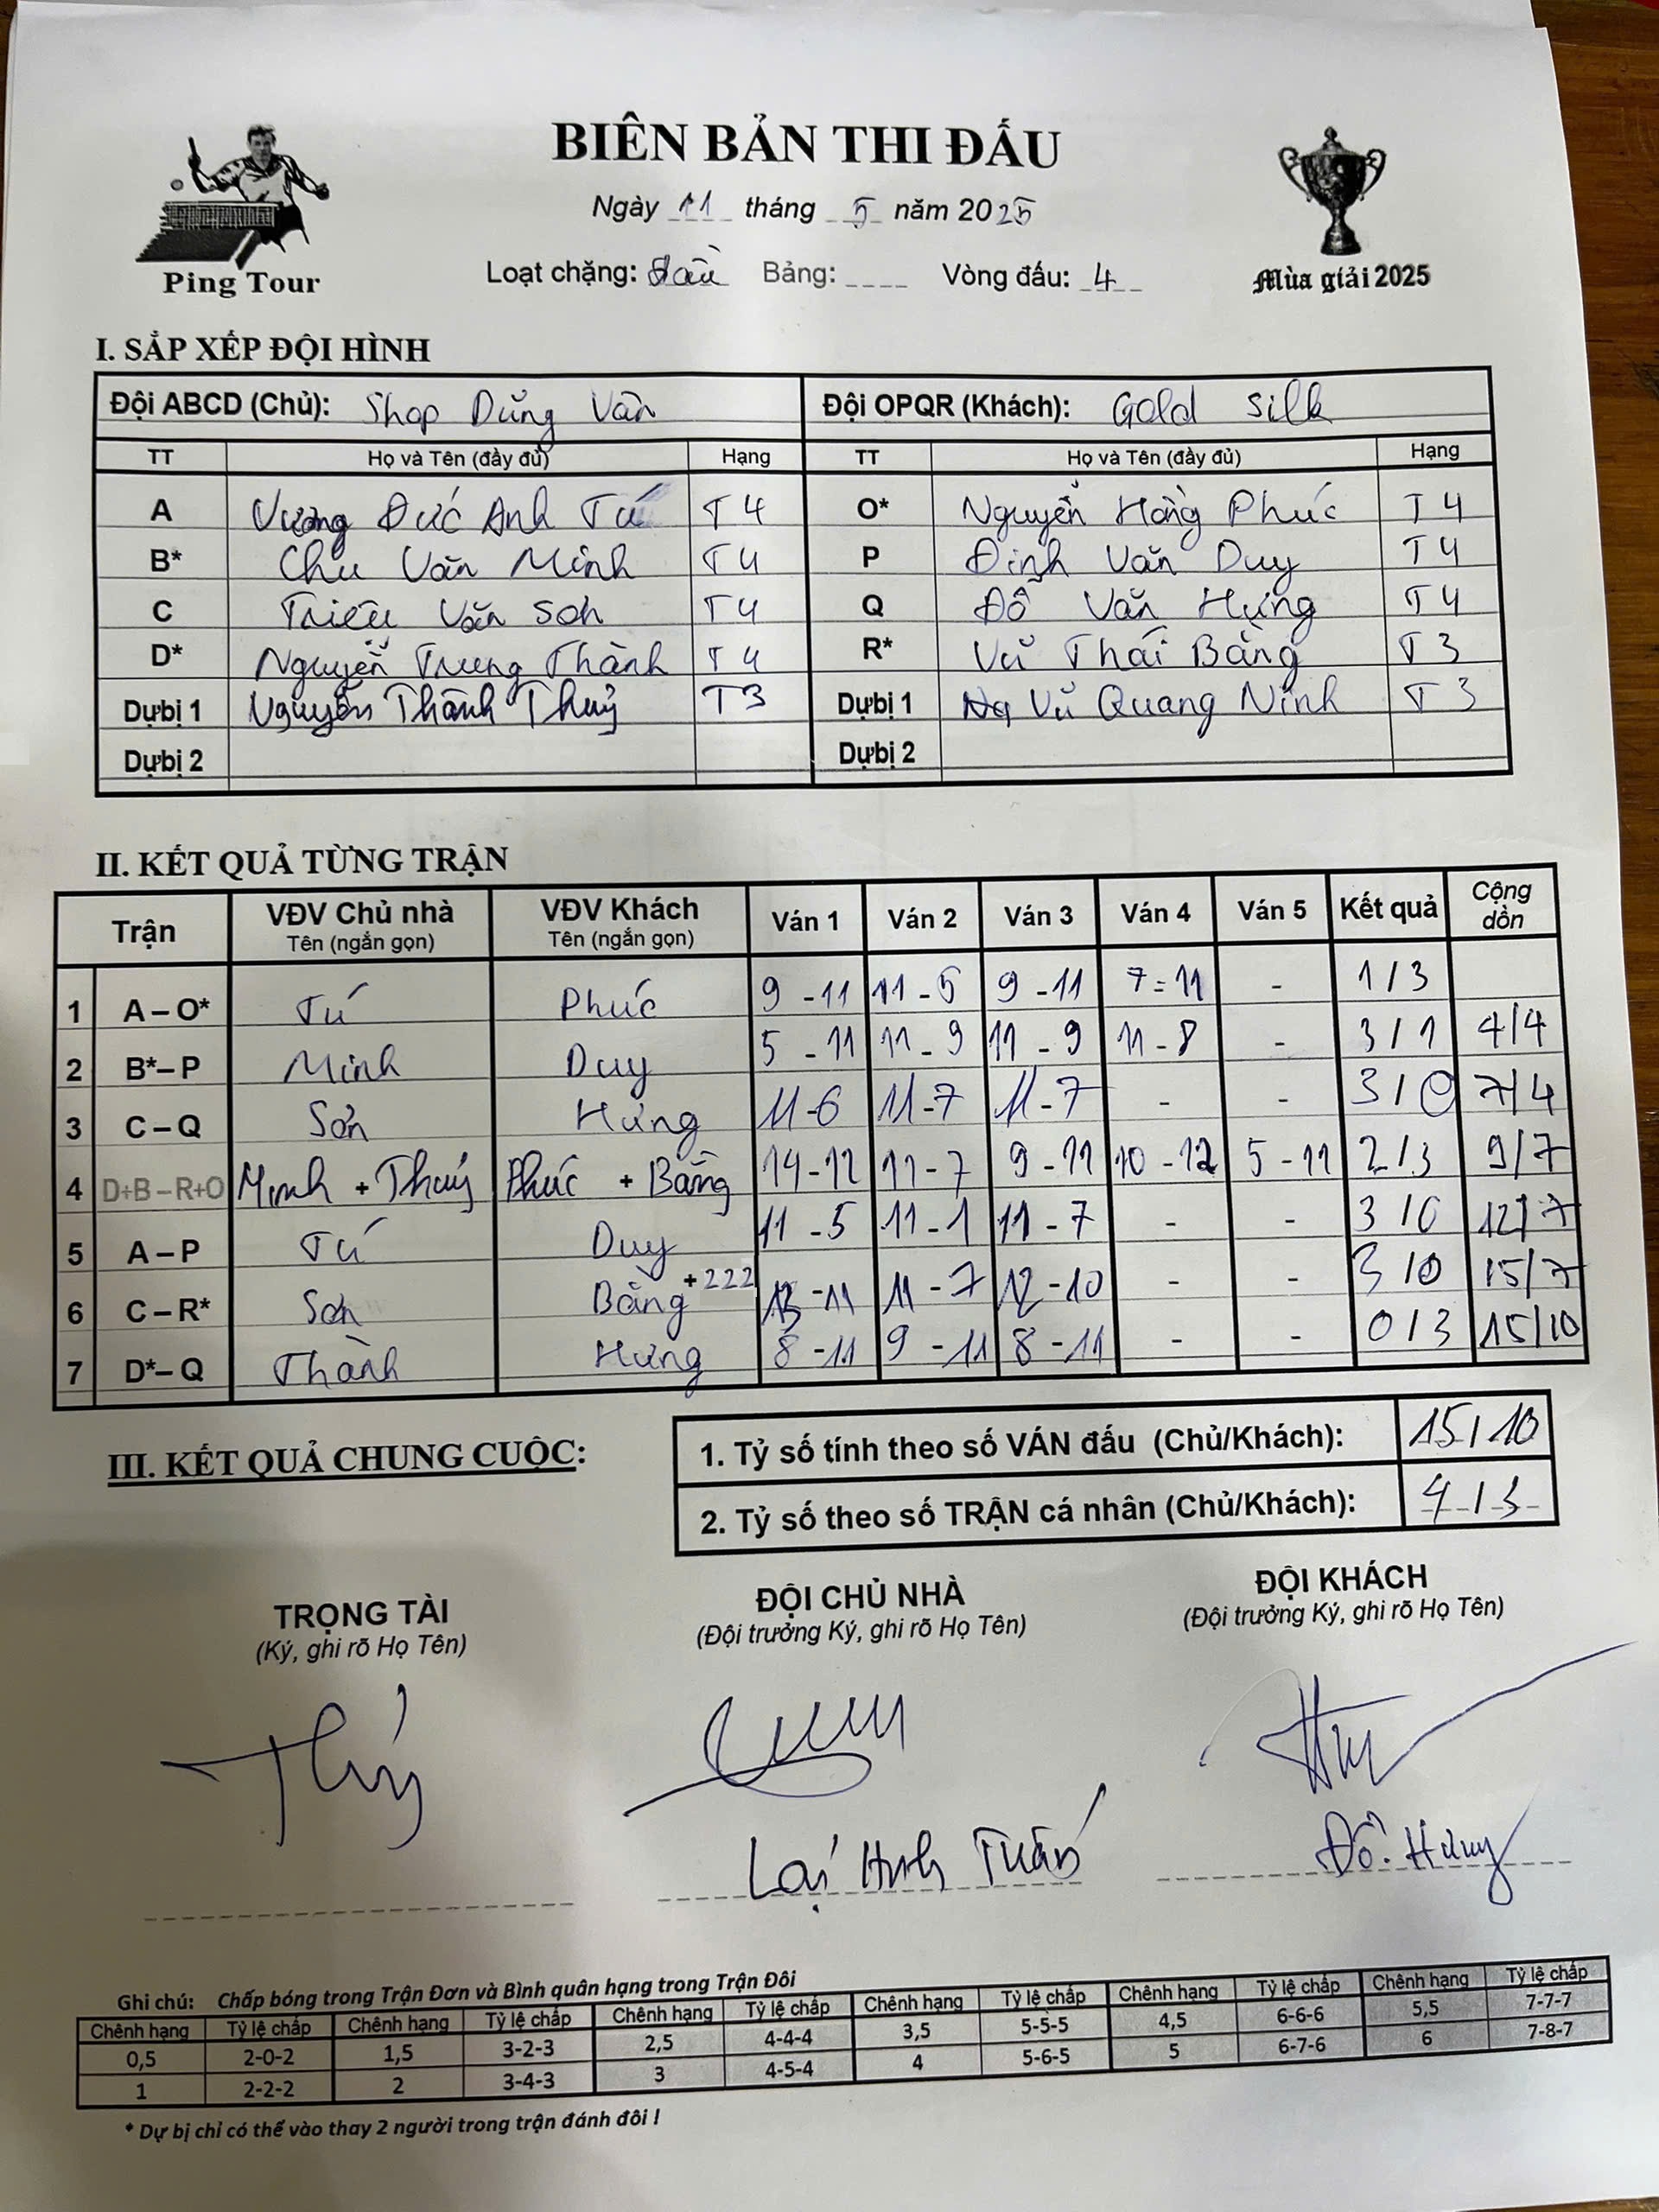 BIÊN BẢN THI ĐẤU
Ngày 11 tháng 5 năm 2025
Ping Tour
Loạt chặng: Đầu Bảng: ____ Vòng đấu: 4
Mùa giải 2025
I. SẮP XẾP ĐỘI HÌNH
Đội ABCD (Chủ): Shop Dũng Vân Đội OPQR (Khách): Gold Silk
TT Họ và Tên (đầy đủ) Hạng TT Họ và Tên (đầy đủ) Hạng
A Vương Đức Anh Tú T4 O* Nguyễn Hồng Phúc T4
B* Chu Văn Minh T4 P Định Văn Duy T4
C Triệu Văn Sơn T4 Q Đỗ Văn Hưng T4
D* Nguyễn Trung Thành T4 R* Vũ Thái Bằng T3
Dự bị 1 Nguyễn Thành Thuỷ T3 Dự bị 1 Vũ Quang Ninh T3
Dự bị 2 Dự bị 2
II. KẾT QUẢ TỪNG TRẬN
Trận VĐV Chủ nhà Tên (ngắn gọn) VĐV Khách Tên (ngắn gọn) Ván 1 Ván 2 Ván 3 Ván 4 Ván 5 Kết quả Cộng dồn
1 A – O* Tú Phúc 9 - 11 11 - 5 9 - 11 7 - 11 - 1 / 3
2 B* – P Minh Duy 5 - 11 11 - 9 11 - 9 11 - 8 - 3 / 1 4/4
3 C – Q Sơn Hưng 11-6 11-7 11-7 - - 3 / 0 7/4
4 D+B – R+O Minh + Thuỷ Phúc + Bằng 14-12 11-7 9-11 10-12 5-11 2/3 9/7
5 A – P Tú Duy 11 - 5 11 - 1 11 - 7 - - 3 / 0 12/7
6 C – R* Sơn Bằng +222 13-11 11 - 7 12-10 - - 3 / 0 15/7
7 D* – Q Thành Hưng 8 - 11 9 - 11 8 - 11 - - 0 / 3 15/10
III. KẾT QUẢ CHUNG CUỘC:
1. Tỷ số tính theo số VÁN đấu (Chủ/Khách): 15 / 10
2. Tỷ số theo số TRẬN cá nhân (Chủ/Khách): 4 / 3
TRỌNG TÀI ĐỘI CHỦ NHÀ ĐỘI KHÁCH
(Ký, ghi rõ Họ Tên) (Đội trưởng Ký, ghi rõ Họ Tên) (Đội trưởng Ký, ghi rõ Họ Tên)
Thuỷ
Lại Anh Tuấn Đỗ. Hưng
Ghi chú: Chấp bóng trong Trận Đơn và Bình quân hạng trong Trận Đôi
Chênh hạng Tỷ lệ chấp Chênh hạng Tỷ lệ chấp Chênh hạng Tỷ lệ chấp Chênh hạng Tỷ lệ chấp Chênh hạng Tỷ lệ chấp Chênh hạng Tỷ lệ chấp
0,5 2-0-2 1,5 3-2-3 2,5 4-4-4 3,5 5-5-5 4,5 6-6-6 5,5 7-7-7
1 2-2-2 2 3-4-3 3 4-5-4 4 5-6-5 5 6-7-6 6 7-8-7
* Dự bị chỉ có thể vào thay 2 người trong trận đánh đôi !